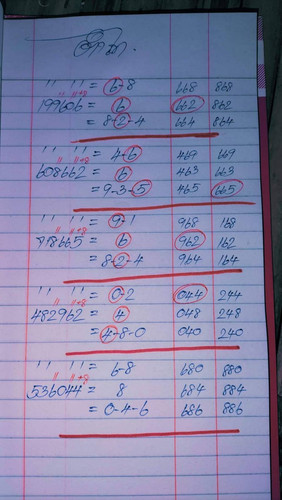 '' '' = 6-8 668 868
199606 = 6 662 862
= 8-2-4 664 864
'' '' = 4-6 469 669
608662 = 6 463 663
= 9-3-5 465 665
'' '' = 9-1 968 168
718665 = 6 962 162
= 8-2-4 964 164
'' '' = 0-2 044 244
482962 = 4 048 248
= 4-8-0 040 240
'' '' = 6-8 680 880
536044 = 8 684 884
= 0-4-6 686 886